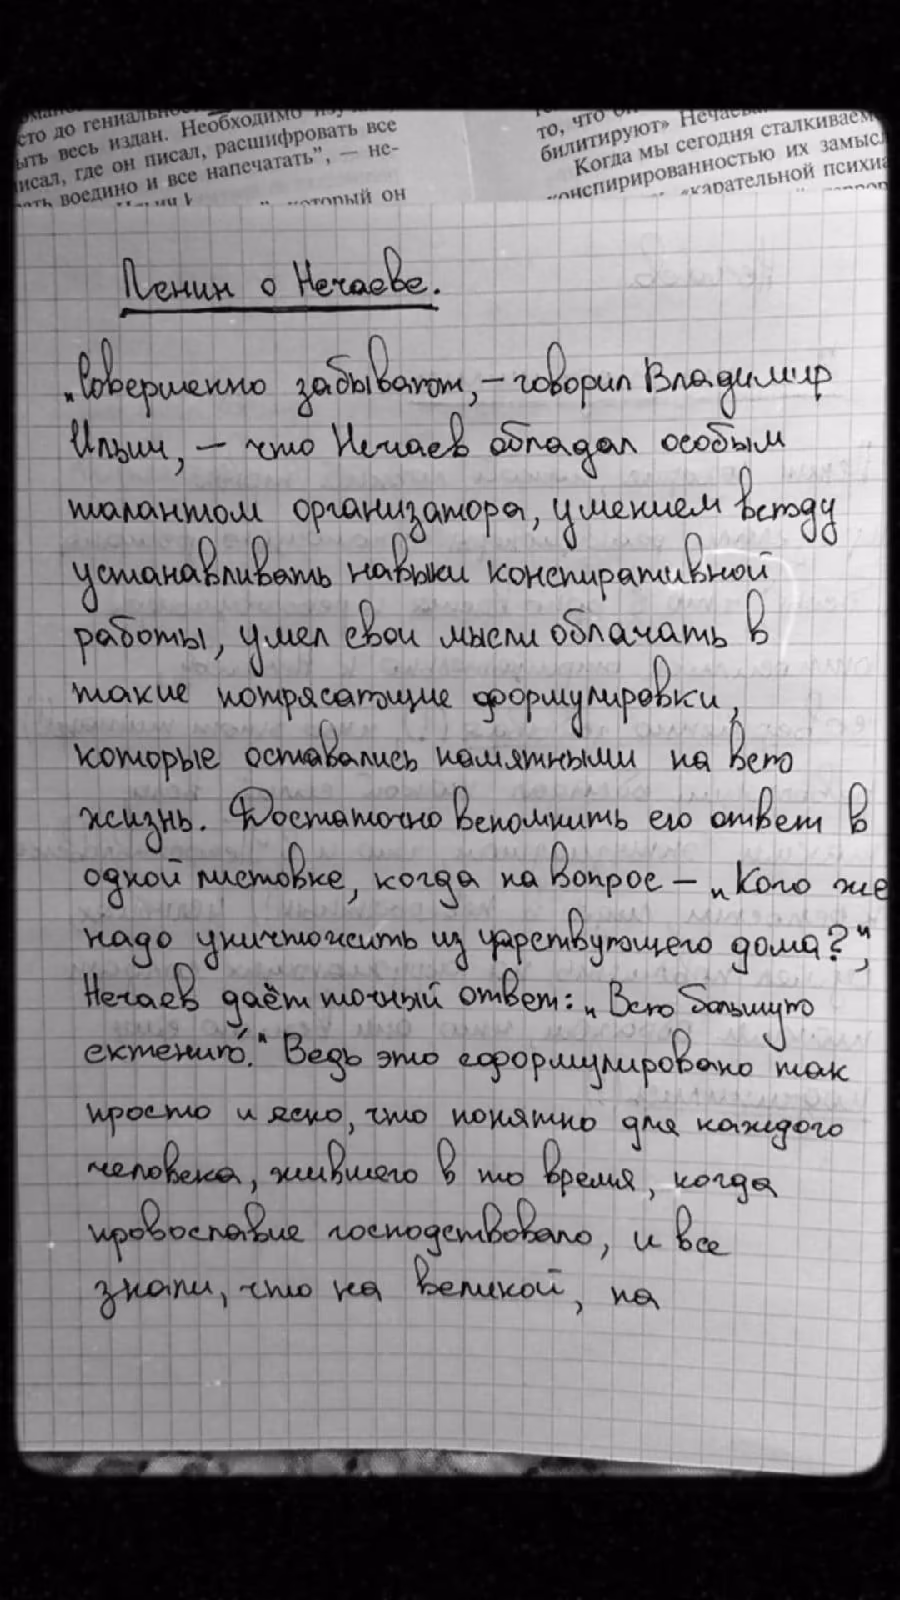 сто до гениальнос
ыть весь издан. Необходимо изу
исал, где он писал, расшифровать все
воедино и все напечатать”, — не-
который он
то, что
билитируют» Нечаева
Когда мы сегодня сталкиваем
конспирированностью их замысл
«карательной психиа
Ленин о Нечаеве.
„Совершенно забывают, – говорил Владимир
Ильич, – что Нечаев обладал особым
талантом организатора, умением всюду
устанавливать навыки конспиративной
работы, умел свои мысли облачать в
такие потрясающие формулировки,
которые оставались памятными на всю
жизнь. Достаточно вспомнить его ответ в
одной листовке, когда на вопрос – „Кого же
надо уничтожить из царствующего дома?“,
Нечаев даёт точный ответ: „Всю большую
ектению́.“ Ведь это сформулировано так
просто и ясно, что понятно для каждого
человека, жившего в то время, когда
провославие господствовало, и все
знали, что на великой, на